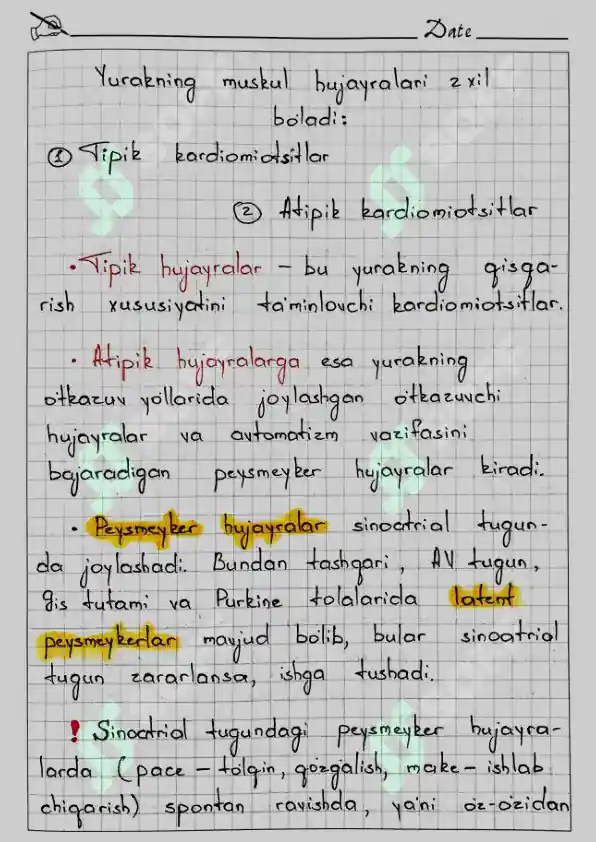 Date
Yurakning muskul hujayralari 2 xil
bo'ladi:
① Tipik kardiomiotsitlar
② Atipik kardiomiotsitlar
• Tipik hujayralar – bu yurakning qisqa-
rish xususiyatini ta'minlovchi kardiomiotsitlar.
• Atipik hujayralarga esa yurakning
o'tkazuv yo'llarida joylashgan o'tkazuvchi
hujayralar va avtomatizm vazifasini
bajaradigan peysmeyker hujayralar kiradi.
• Peysmeyker hujayralar sinoatrial tugun-
da joylashadi. Bundan tashqari, AV tugun,
Gis tutami va Purkine tolalarida latent
peysmeykerlar mavjud bo'lib, bular sinoatrial
tugun zararlansa, ishga tushadi.
! Sinoatrial tugundagi peysmeyker hujayra-
larda (pace – to'lqin, qo'zg'alish, make – ishlab
chiqarish) spontan ravishda, ya'ni o'z-o'zidan